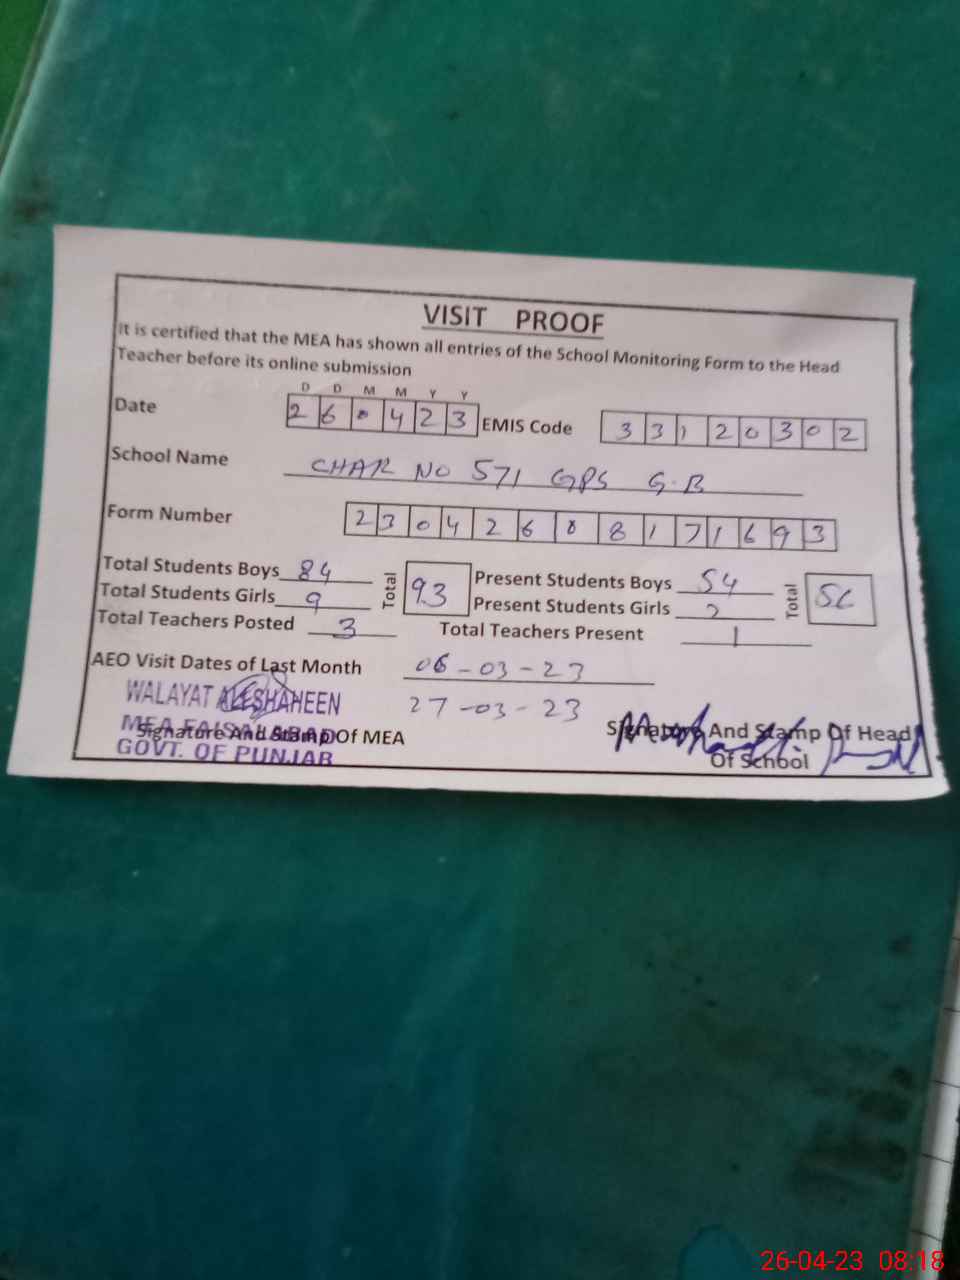 VISIT PROOF
It is certified that the MEA has shown all entries of the School Monitoring Form to the Head
Teacher before its online submission
D D M M Y Y
Date 2 6 0 4 2 3 EMIS Code 3 3 1 2 0 3 0 2
School Name CHAK NO 571 GPS G.B
Form Number 2 3 0 4 2 6 0 8 1 7 1 6 9 3
Total Students Boys 84 Total 93 Present Students Boys 54 Total 56
Total Students Girls 9 Present Students Girls 2
Total Teachers Posted 3 Total Teachers Present 1
AEO Visit Dates of Last Month 06-03-23
27-03-23
WALAYAT ALI SHAHEEN
MEA FAISALABAD
GOVT. OF PUNJAB
Signature And Stamp Of MEA
Signature And Stamp Of Head
Of School
26-04-23 08:18